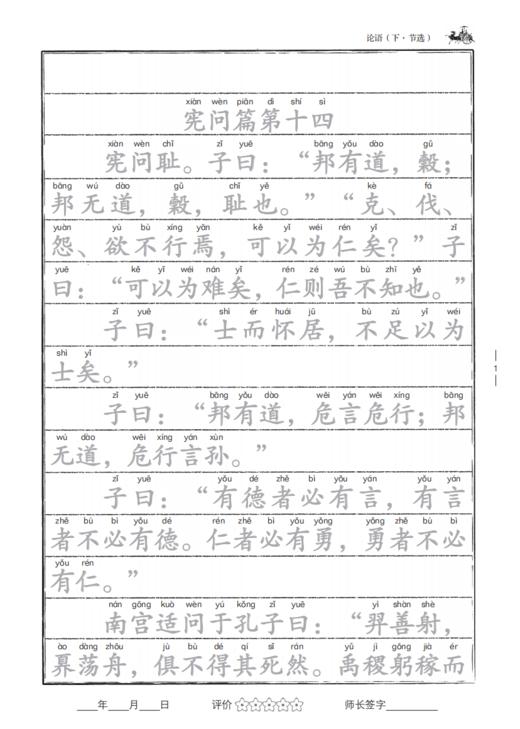 论语（下·节选）
xiàn wèn piān dì shí sì
宪问篇第十四
xiàn wèn chǐ zǐ yuē bāng yǒu dào gǔ
宪问耻。子曰：“邦有道，穀；
bāng wú dào gǔ chǐ yě kè fá
邦无道，穀，耻也。”“克、伐、
yuàn yù bù xíng yān kě yǐ wéi rén yǐ zǐ
怨、欲不行焉，可以为仁矣？”子
yuē kě yǐ wéi nán yǐ rén zé wú bù zhī yě
曰：“可以为难矣，仁则吾不知也。”
zǐ yuē shì ér huái jū bù zú yǐ wéi
子曰：“士而怀居，不足以为
shì yǐ
士矣。”
zǐ yuē bāng yǒu dào wēi yán wēi xíng bāng
子曰：“邦有道，危言危行；邦
wú dào wēi xíng yán xùn
无道，危行言孙。”
zǐ yuē yǒu dé zhě bì yǒu yán yǒu yán
子曰：“有德者必有言，有言
zhě bù bì yǒu dé rén zhě bì yǒu yǒng yǒng zhě bù bì
者不必有德。仁者必有勇，勇者不必
yǒu rén
有仁。”
nán gōng kuò wèn yú kǒng zǐ yuē yì shàn shè
南宫适问于孔子曰：“羿善射，
ào dàng zhōu jù bù dé qí sǐ rán yǔ jì gōng jià ér
奡荡舟，俱不得其死然。禹稷躬稼而
1
____年____月____日 评价☆☆☆☆☆ 师长签字________